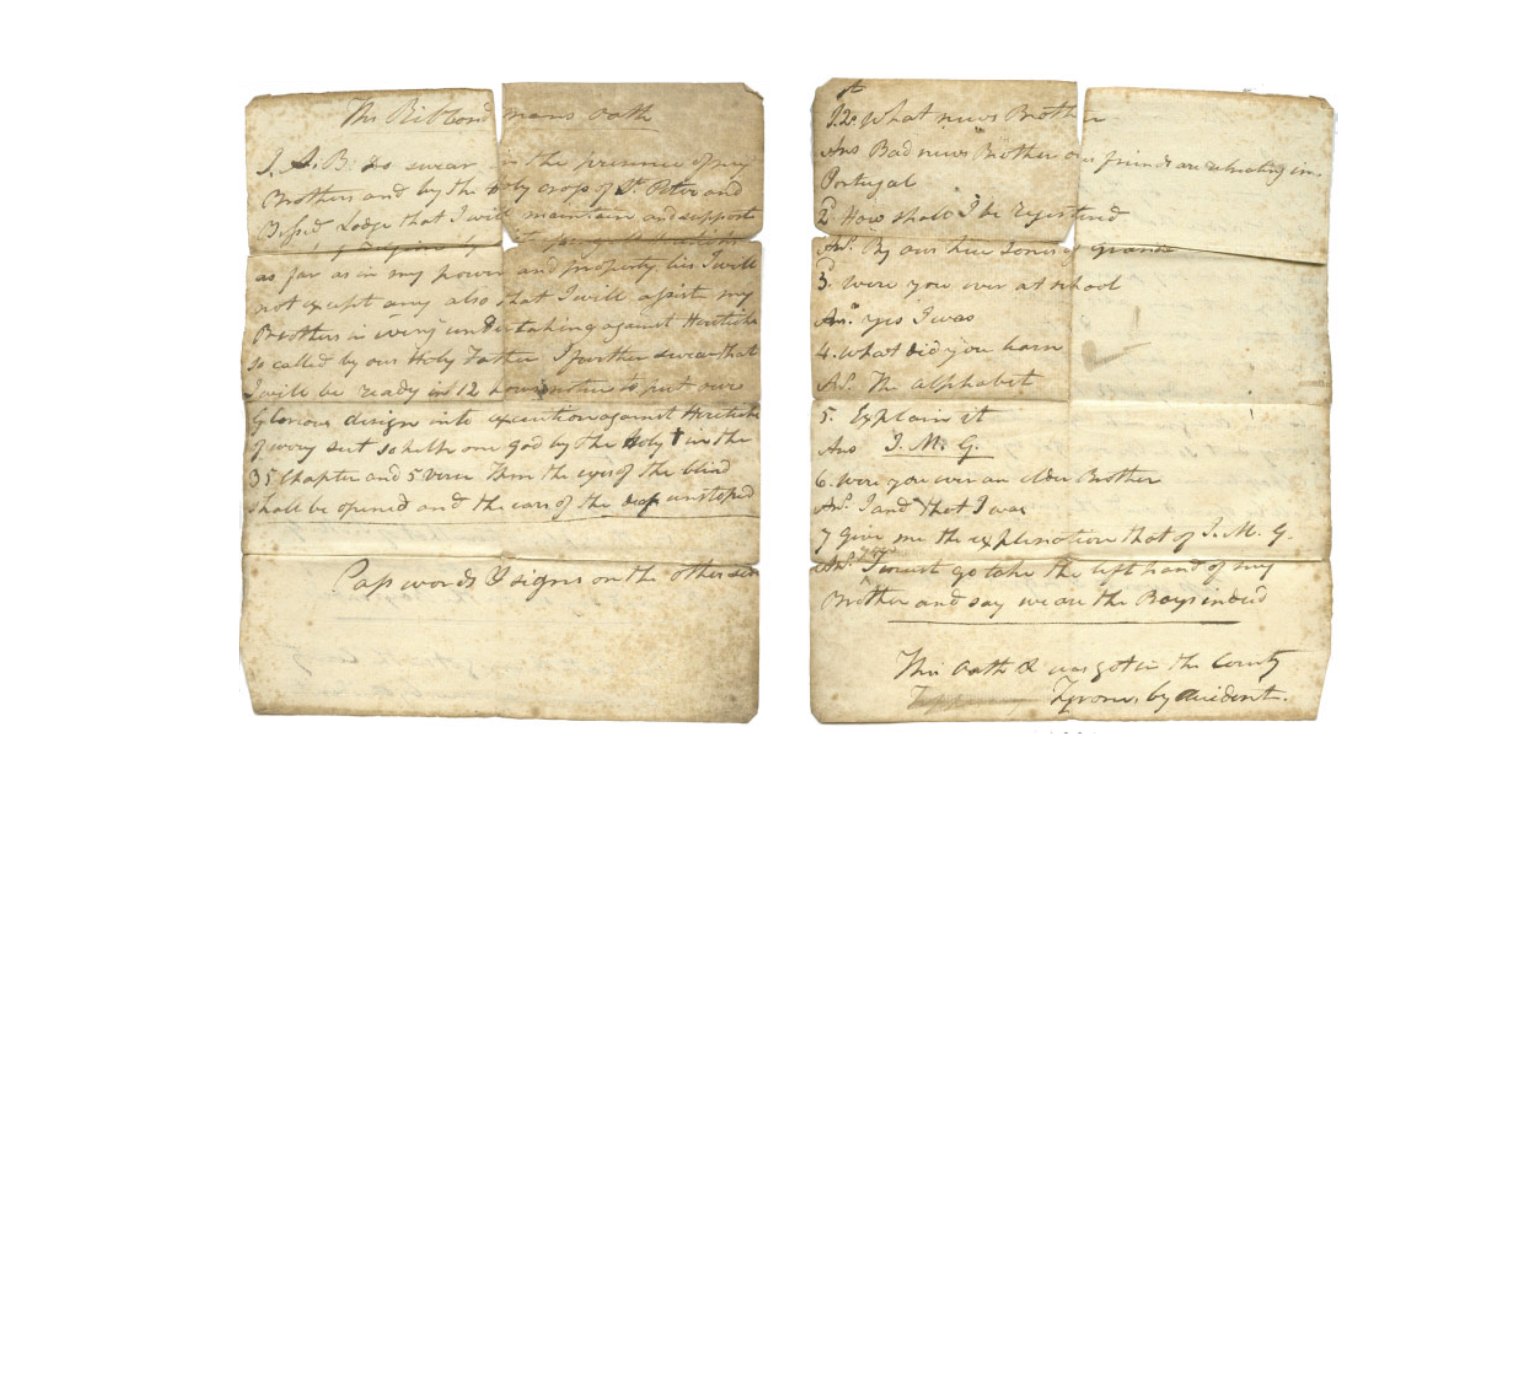 The Ribbond mans oath
I. A: B: do swear in the presence of my
Brothers and by the holy cross of St. Peter and
Blessed Lodge that I will maintain and support
as far as in my power and property lies I will
not except any also that I will assist my
Brothers in every undertaking against Heriticks
so called by our Holy Father I further swear that
I will be ready in 12 hours notice to put our
Glorious design into execution against Heriticks
of every sect so help me god by the Holy † in the
35 Chapter and 5 verse Then the eyes of the blind
shall be opened and the ears of the deaf unstoped
Pass words & signs on the other side
What news Brother
Ans Bad news Brother our friends are in
Portugal
2d. How shall I be registered
Ans. By our
3d. were you ever at school
Ans. yes I was
4. what did you learn
As. The alphabet
5. Explain it
Ans I. M. G.
6. were you ever an elder Brother
Ans. I and that I was
7 Give me the explination that of I. M. G.
Ans. I must go take the left hand of my
Brother and say we are the Boys indeed
This oath & was got in the County
Tyrone, by accident.